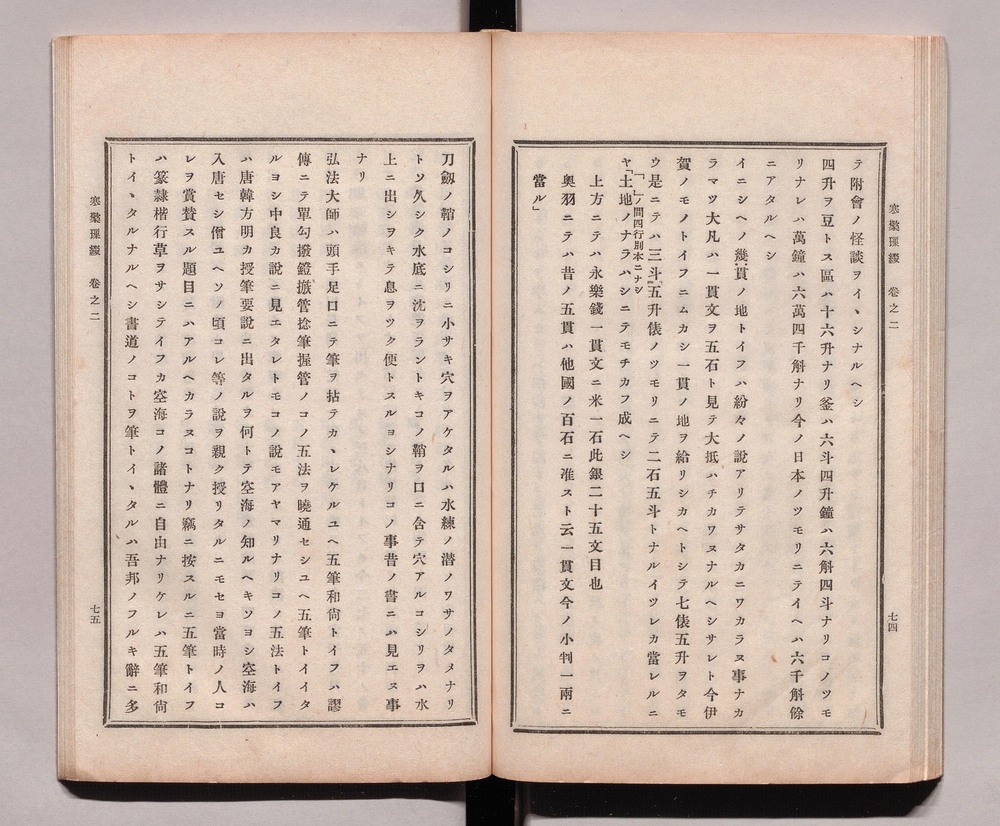 寒檠璅綴　卷之二
七四
テ附會ノ怪談ヲイヽシナルヘシ
四升ヲ豆トス區ハ十六升ナリ釜ハ六斗四升鐘ハ六斛四斗ナリコノツモ
リナレハ萬鐘ハ六萬四千斛ナリ今ノ日本ノツモリニテイヘハ六千斛餘
ニアタルヘシ
イニシヘノ幾貫ノ地トイフハ紛々ノ說アリテサタカニワカラヌ事ナカ
ラマツ大凡ハ一貫文ヲ五石ト見テ大抵ハチカワヌナルヘシサレト今伊
賀ノモノトイフニムカシ一貫ノ地ヲ給リシカヘトシテ七俵五升ヲタモ
ウ是ニテハ三斗五升俵ノツモリニテ二石五斗トナルイツレカ當レルニ
「　」ノ間四行別本ニナシ
ヤ「土地ノナラハシニテモチカフ成ヘシ
上方ニテハ永樂錢一貫文ニ米一石此銀二十五文目也
奧羽ニテハ昔ノ五貫ハ他國ノ百石ニ准スト云一貫文今ノ小判一兩ニ
當ル」
刀劔ノ鞘ノコシリニ小サキ穴ヲアケタルハ水練ノ潛ノワサノタメナリ
トソ久シク水底ニ沈ヲラントキコノ鞘ヲ口ニ含テ穴アルコシリヲハ水
上ニ出シヲキテ息ヲツク便トスルヨシナリコノ事昔ノ書ニハ見エヌ事
ナリ
弘法大師ハ頭手足口ニテ筆ヲ拈テカヽレケルユヘ五筆和尙トイフハ謬
傳ニテ單勾撥鐙撅管捻筆握管ノコノ五法ヲ曉通セシユヘ五筆トイイタ
ルヨシ中良カ說ニ見エタレトモコノ說モアヤマリナリコノ五法トイフ
ハ唐韓方明カ授筆要說ニ出タルヲ何トテ空海ノ知ルヘキソヨシ空海ハ
入唐セシ僧ユヘソノ頃コレ等ノ說ヲ親ク授リタルニモセヨ當時ノ人コ
レヲ賞賛スル題目ニハアルヘカラヌコトナリ竊ニ按スルニ五筆トイフ
ハ篆隷楷行草ヲサシテイフカ空海コノ諸體ニ自由ナリケレハ五筆和尙
トイヽタルナルヘシ書道ノコトヲ筆トイヽタルハ吾邦ノフルキ辭ニ多
寒檠璅綴　卷之二
七五